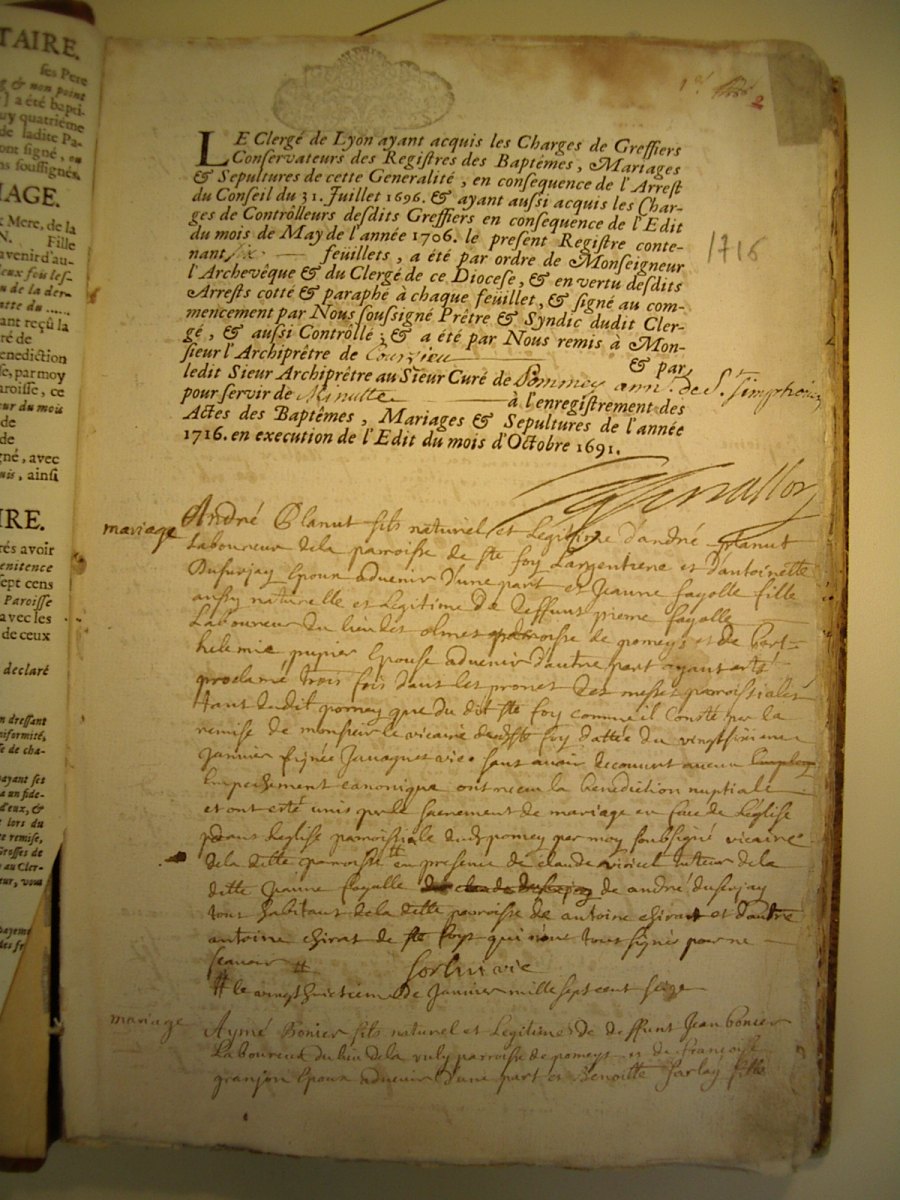 TAIRE.
ses Pere
& non point
] a été bapti-
uy quatriéme
de ladite Pa-
ont signé, ou
ns soussignés.
IAGE.
Mere, de la
N. Fille
avenir d'au-
eux fois les-
u de la der-
atte du ......
ant reçû la
ré de
enediction
se, par moy
aroisse, ce
eur du mois
de
de
gné, avec
uis, ainsi
IRE.
rés avoir
enitence
sept cens
Paroisse
avec les
de ceux
declaré
n dressant
iformité,
se de cha-
ayant ses
a un fide-
d'eux, &
t lors du
te remise,
Grosses de
au Cler-
eur, vous
2
LE Clergé de Lyon ayant acquis les Charges de Greffiers
Conservateurs des Registres des Baptêmes, Mariages
& Sepultures de cette Generalité, en consequence de l'Arrest
du Conseil du 31. Juillet 1696. & ayant aussi acquis les Char-
ges de Contrôlleurs desdits Greffiers en consequence de l'Edit
du mois de May de l'année 1706. le present Registre conte-
nant six feüillets, a été par ordre de Monseigneur
1716
l'Archevêque & du Clergé de ce Diocese, & en vertu desdits
Arrests cotté & paraphé à chaque feüillet, & signé au com-
mencement par Nous soussigné Prêtre & Syndic dudit Cler-
gé, & aussi Contrôllé; & a été par Nous remis à Mon-
sieur l'Archiprêtre de Courzieu & par
ledit Sieur Archiprêtre au Sieur Curé de Pommey ann. de St. Simphorien
pour servir de Minutte à l'enregistrement des
Actes des Baptêmes, Mariages & Sepultures de l'année
1716. en execution de l'Edit du mois d'Octobre 1691.
mariage
André Blanut fils naturel et Legitime d'andré Blanut
Laboureur dela parroisse de ste foy Largentiere et d'antoinette
Dusurjay Epoux advenir d'une part et Jeanne fayolle fille
aussy naturelle et Legitime de deffunt pierre fayolle
Laboureur du lieu des olmes parroisse de pomeys et de Bart-
helemie pupier Epouse advenir d'autre part ayant esté
proclamé trois fois dans les prones des messes parroissiales
tant dudit pomey que du dit ste foy comme il Conste par la
remise de monsieur le vicaire dudit ste foy dattée du vingt
Janvier signée vic. sans avoir decouvert aucun
Empechement canonique ont receu la benediction nuptiale
et ont esté unis par le sacrement de mariage en face de Leglise
dans Leglise parroissiale dud pomey par moy soubsigné vicaire
dela ditte parroisse # en presence de claude viricel tuteur dela
ditte jeanne fayolle de andré dusurjay
tous habitans dela ditte parroisse de antoine chirat et d'autre
antoine chirat de ste foys qui n'ont tous signé pour ne
scavoir # vic
# le vingt huictieme de Janvier mille sept cent seize
mariage
Aymé Bonier fils naturel et Legitime de deffunt Jean bonier
Laboureur du lieu dela vuly parroisse de pomeys et de françoise
granjon Epoux advenir d'une part et Benoitte Jarlay fille